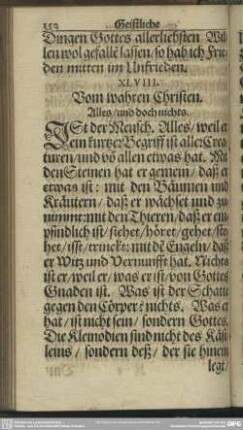 352 Geistliche
Dingen Gottes allerliebsten Wil-
len wol gefallẽ lassen / so hab ich Frie-
den mitten im Unfrieden.
XLVIII.
Vom wahren Christen.
Alles / und doch nichts.
ISt der Mensch. Alles / weil er
ein kurtzer Begriff ist aller Crea-
turen / und võ allen etwas hat. Mit
den Steinen hat er gemein / daß er
etwas ist: mit den Bäumen und
Kräutern / daß er wächset und zu-
nimmt: mit den Thieren / daß er em-
pfindlich ist / siehet / höret / gehet / ste-
het / isst / trinckt: mit dẽ Engeln / daß
er Witz und Vernunfft hat. Nichts
ist er / weil er / was er ist / von Gottes
Gnaden ist. Was ist der Schatte
gegen den Cörper? nichts. Was er
hat / ist nicht sein / sondern Gottes.
Die Kleinodien sind nicht des Käst-
leins / sondern deß / der sie hinein
legt /